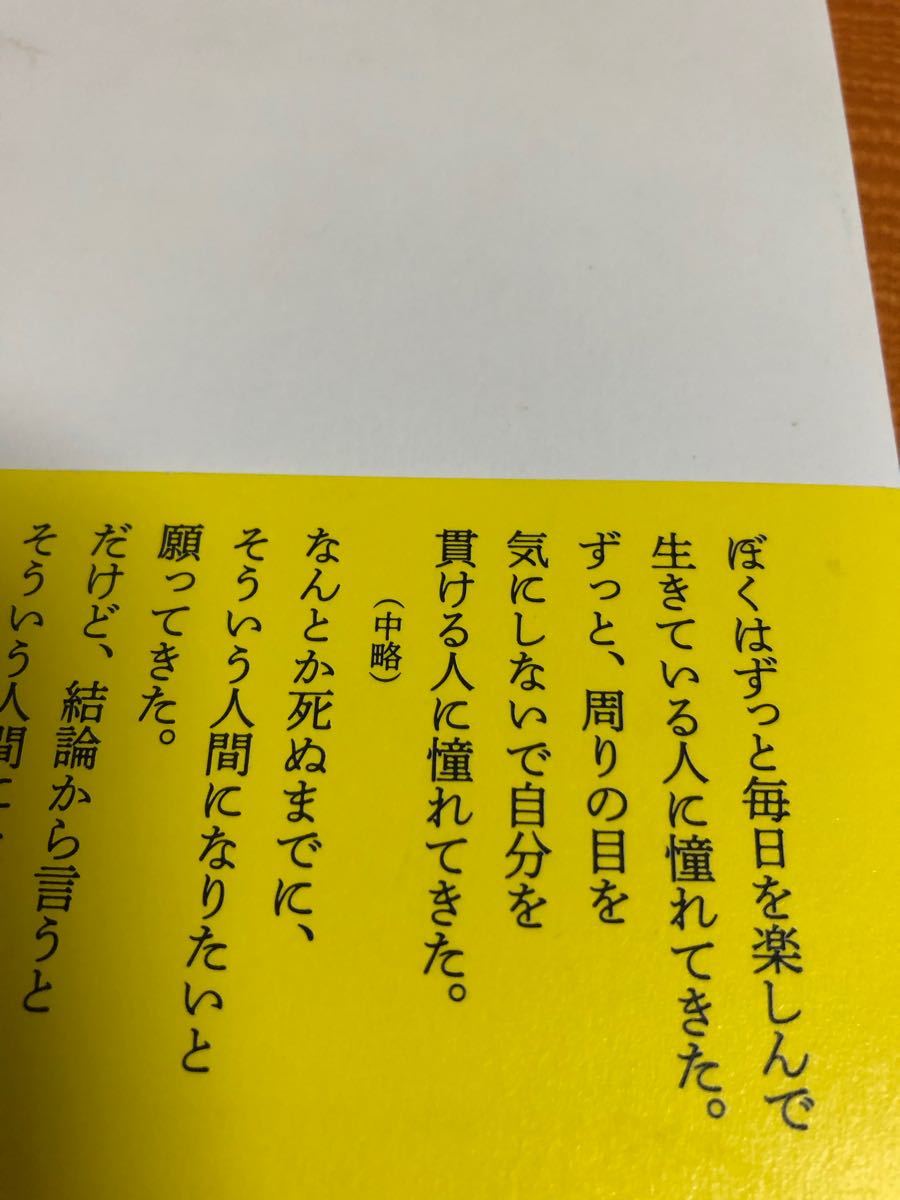 ぼくはずっと毎日を楽しんで
生きている人に憧れてきた。
ずっと、周りの目を
気にしないで自分を
貫ける人に憧れてきた。
（中略）
なんとか死ぬまでに、
そういう人間になりたいと
願ってきた。
だけど、結論から言うと
そういう人間に